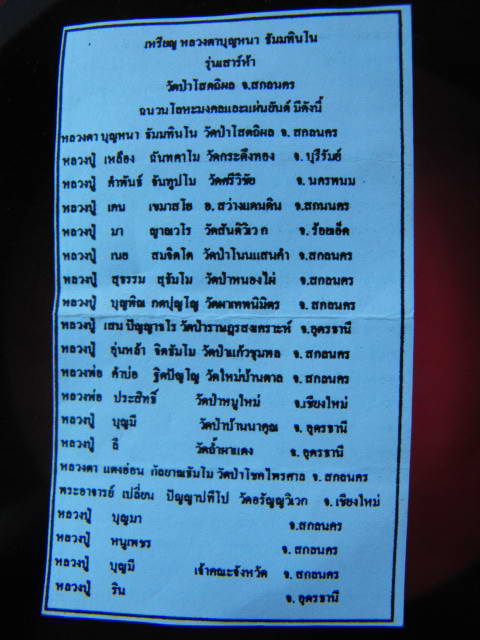 เหรียญ หลวงตาบุญหนา ธัมมทินโน
รุ่นเสาร์ห้า
วัดป่าโสตถิผล จ.สกลนคร
ฉนวนโลหะมงคลและแผ่นยันต์ มีดังนี้
หลวงตา บุญหนา ธัมมทินโน วัดป่าโสตถิผล จ. สกลนคร
หลวงปู่ เหลือง ฉันทคาโม วัดกระดึงทอง จ. บุรีรัมย์
หลวงปู่ คำพันธ์ จันทูปโม วัดศรีวิชัย จ. นครพนม
หลวงปู่ เคน เขมาสโย อ. สว่างแดนดิน จ.สกลนคร
หลวงปู่ มา ญาณวโร วัดสันติวิเวก จ. ร้อยเอ็ด
หลวงปู่ เนย สมจิตโต วัดป่าโนนแสนคำ จ.สกลนคร
หลวงปู่ สุธรรม สุธัมโม วัดป่าหนองไผ่ จ. สกลนคร
หลวงปู่ บุญพิณ กตปุญโญ วัดผาเทพนิมิตร จ. สกลนคร
หลวงปู่ เสน ปัญญาธโร วัดป่าราษฎรสงเคราะห์ จ.อุดรธานี
หลวงปู่ อุ่นหล้า ฐิตธัมโม วัดป่าแก้วชุมพล จ. สกลนคร
หลวงพ่อ คำบ่อ ฐิตปัญโญ วัดใหม่บ้านตาล จ. สกลนคร
หลวงพ่อ ประสิทธิ์ วัดป่าหมู่ใหม่ จ.เชียงใหม่
หลวงปู่ บุญมี วัดป่าบ้านนาคูณ จ. อุดรธานี
หลวงปู่ ลี วัดถ้ำผาแดง จ. อุดรธานี
หลวงตา แตงอ่อน กัลยาณธัมโม วัดป่าโชคไพศาล จ. สกลนคร
พระอาจารย์ เปลี่ยน ปัญญาปทีโป วัดอรัญญวิเวก จ.เชียงใหม่
หลวงปู่ บุญมา จ.สกลนคร
หลวงปู่ หนูเพชร จ. สกลนคร
หลวงปู่ บุญมี เจ้าคณะจังหวัด จ. สกลนคร
หลวงปู่ ริน จ. อุดรธานี